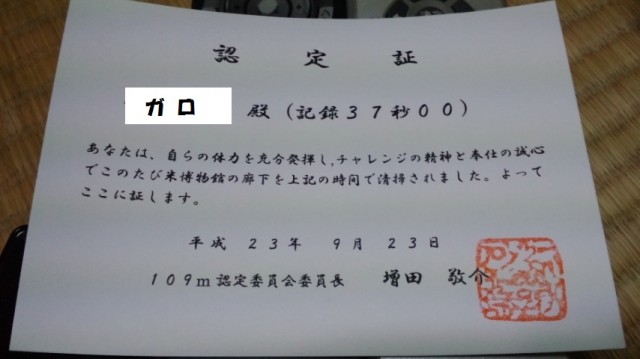 認定証
ガロ 殿(記録37秒00)
あなたは、自らの体力を充分発揮し、チャレンジの精神と奉仕の誠心
でこのたび米博物館の廊下を上記の時間で清掃されました。よって
ここに証します。
平成 23年 9月 23日
109m認定委員会委員長 増田 敬介